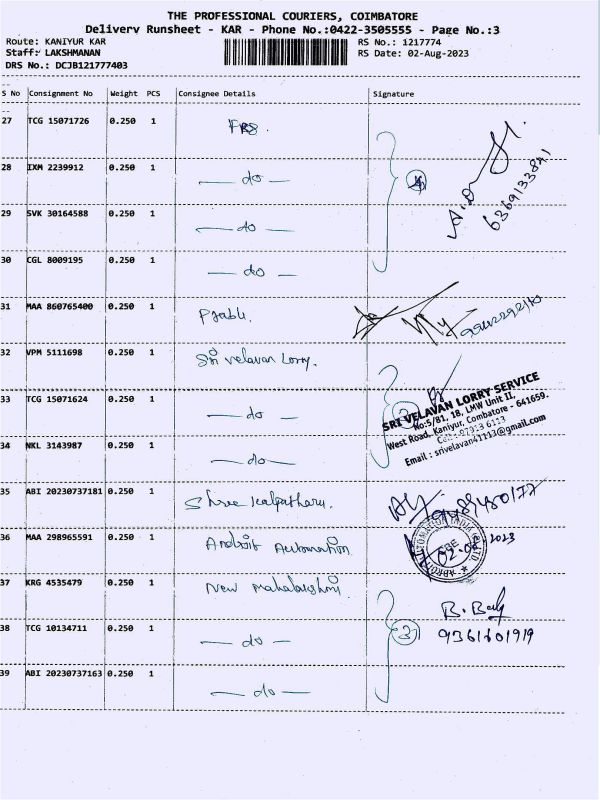 THE PROFESSIONAL COURIERS, COIMBATORE
Delivery Runsheet - KAR - Phone No.:0422-3505555 - Page No.:3
Route: KANIYUR KAR RS No.: 1217774
Staff: LAKSHMANAN RS Date: 02-Aug-2023
DRS No.: DCJB121777403
S No Consignment No Weight PCS Consignee Details Signature
27 TCG 15071726 0.250 1
28 IXM 2239912 0.250 1 — do —
29 SVK 30164588 0.250 1 — do —
30 CGL 8009195 0.250 1 — do —
6369133841
31 MAA 860765400 0.250 1 Prabu.
32 VPM 5111698 0.250 1 Sri velavan Lorry.
33 TCG 15071624 0.250 1 — do —
SRI VELAVAN LORRY SERVICE
No:5/81, 18, LMW Unit II,
West Road, Kaniyur, Coimbatore - 641659.
Cell: 87913 6113
Email : srivelavan41113@gmail.com
34 NKL 3143987 0.250 1 — do —
35 ABI 20230737181 0.250 1 Shree Kalpatharu.
36 MAA 298965591 0.250 1 Android Automation
2023
37 KRG 4535479 0.250 1 New Mahalakshmi
38 TCG 10134711 0.250 1 — do — 3
9361601919
39 ABI 20230737163 0.250 1 — do —